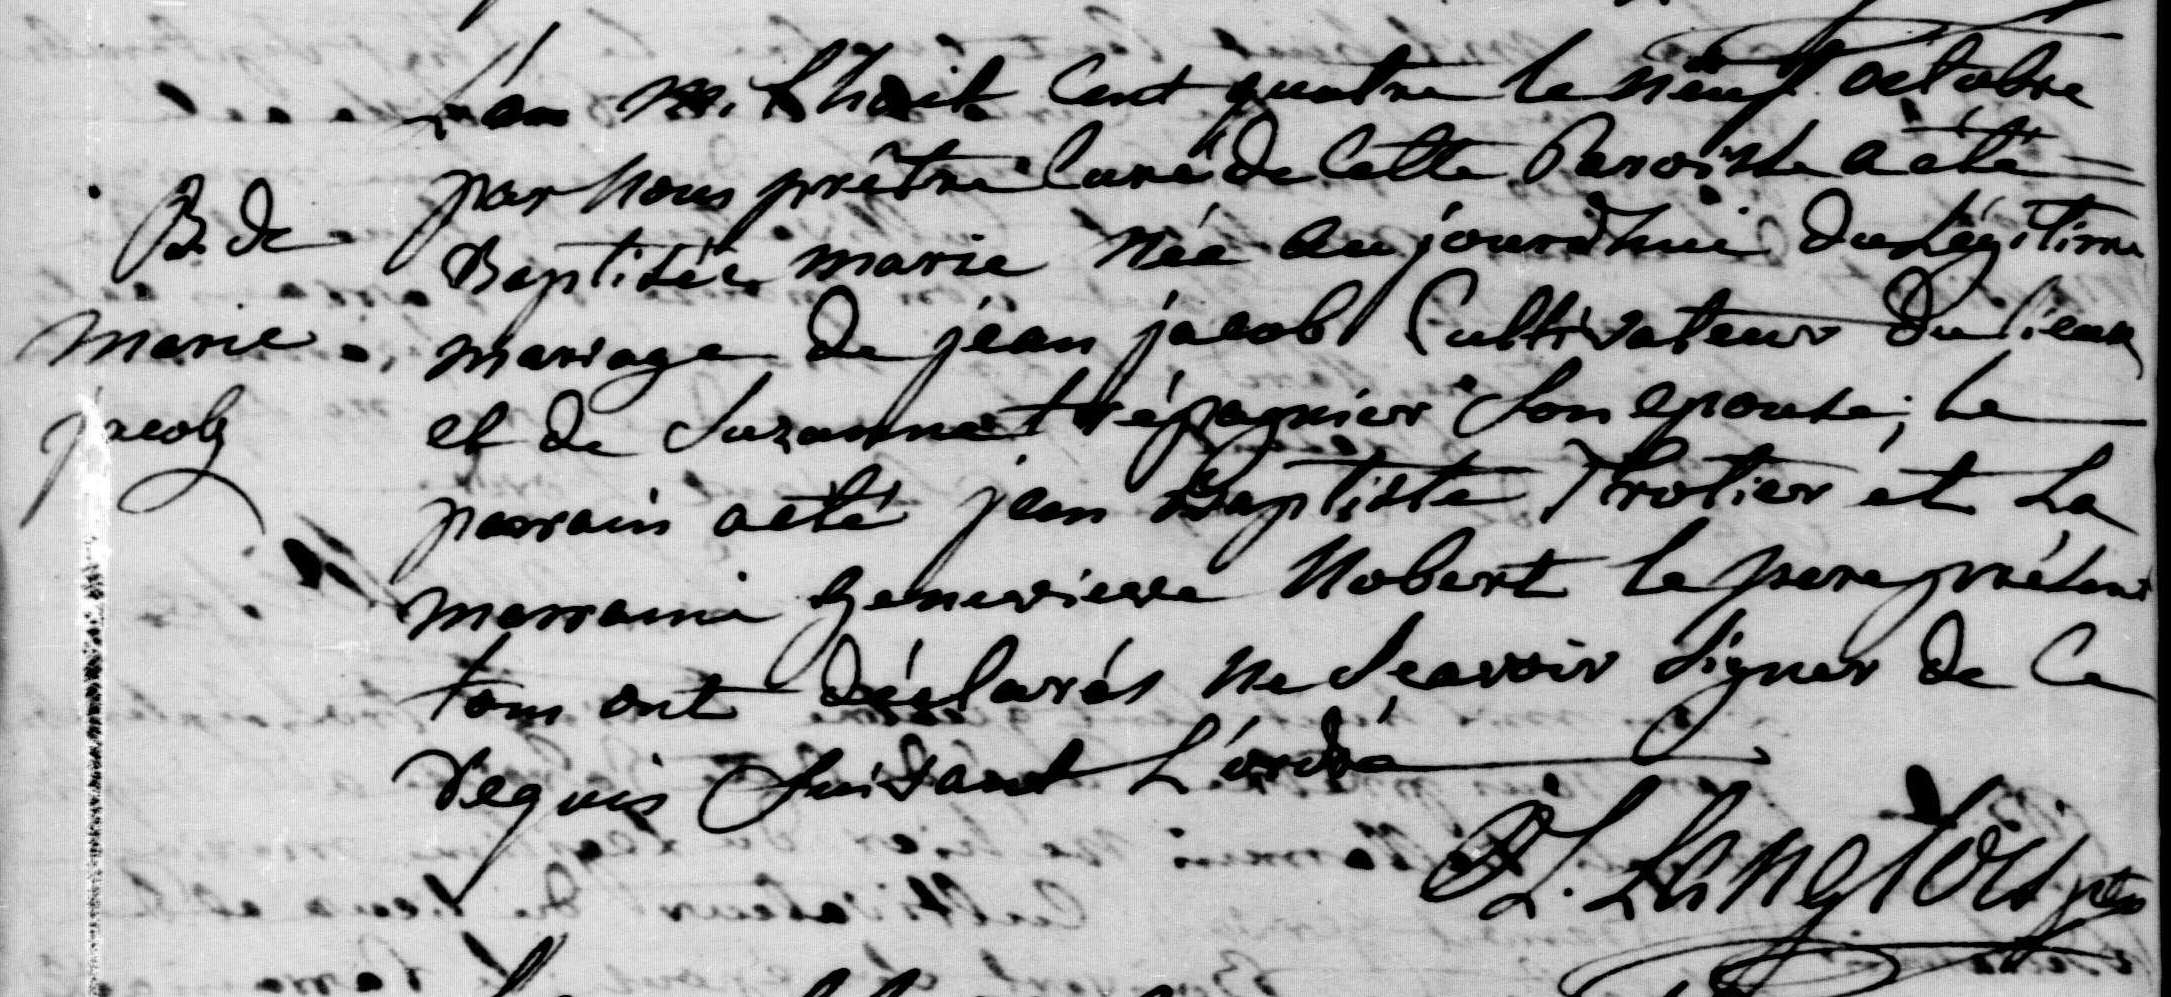 B. de
Marie
jacob
L'an mil huit Cent quatre le neuf octobre
par nous prêtre Curé de Cette Paroisse a été
Baptisée marie née aujourd'hui du Légitime
mariage de jean jacob Cultivateur du lieux
et de Suzanne trépagnier Son epouse; Le
parrain a été jean Baptiste Trotier et La
marraine Genevieve Nobert le pere présent
tous ont déclarés ne Sçavoir Signer de Ce
Requis Suivant L'ordce
Langlois ptre